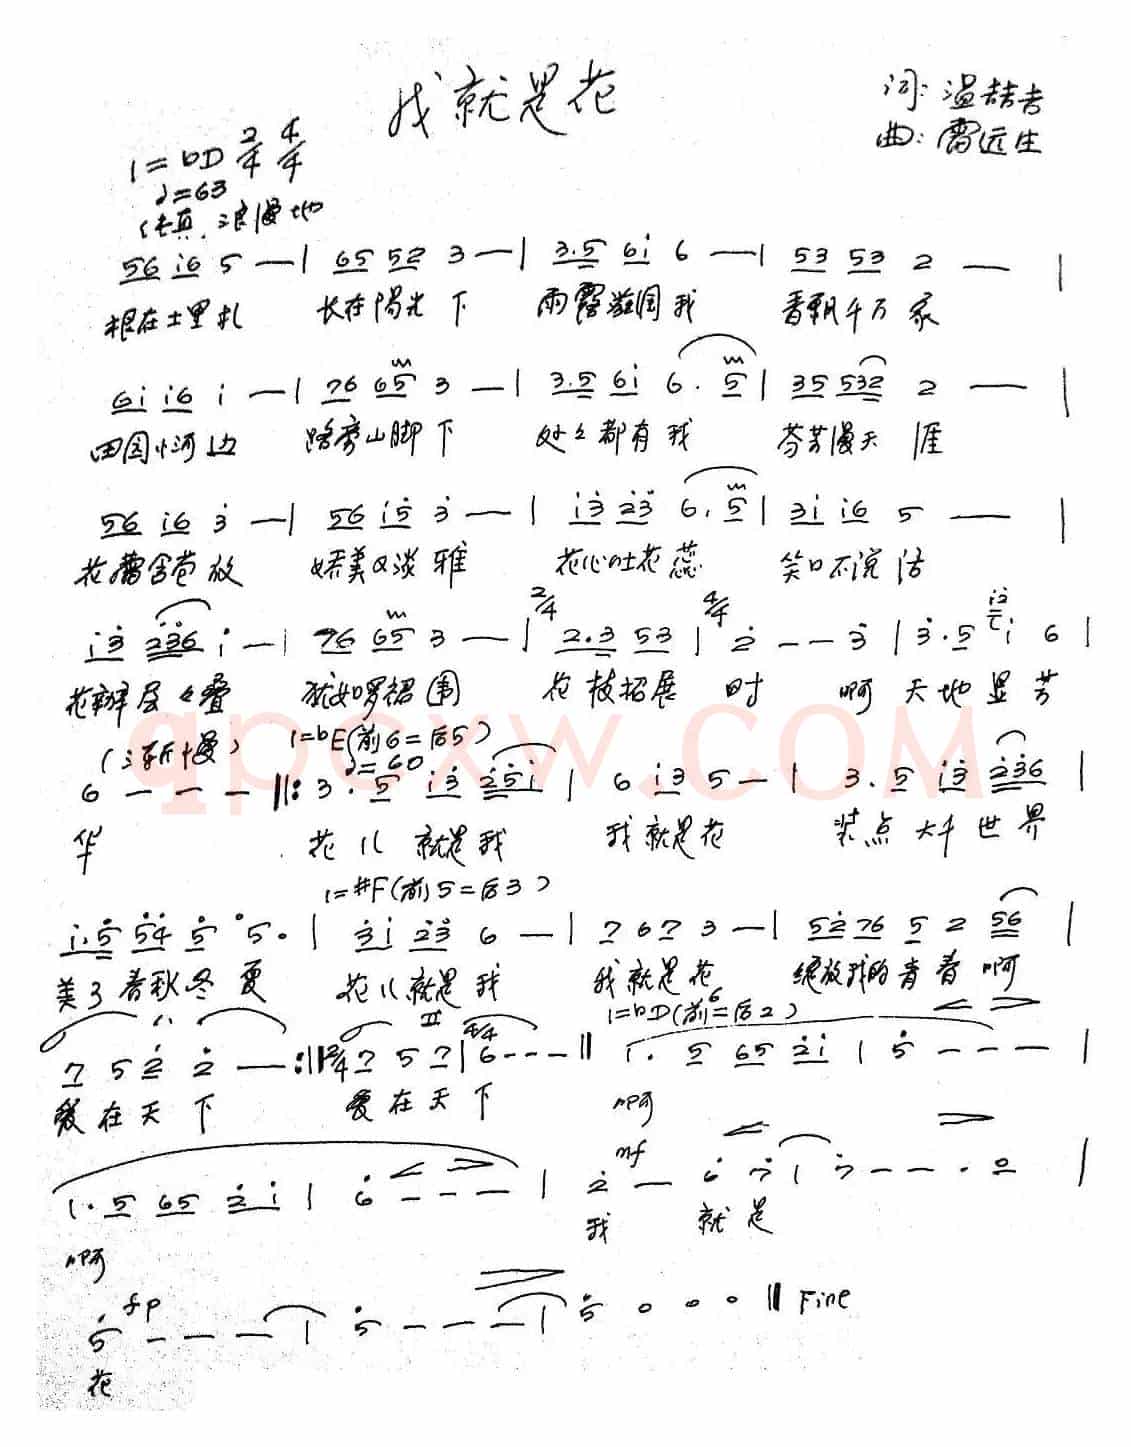 我就是花
词: 温喆吉
曲: 雷远生
1=bD 2/4 4/4
♩=63
浪漫地
56 i6 5 — | 65 52 3 — | 3.5 6i 6 — | 53 53 2 — |
根在土里扎 长在陽光下 雨露滋润我 香飘千万家
6i i6 i — | 76 65 3 — | 3.5 6i 6. 5 | 35 532 2 — |
田园河边 路旁山脚下 处々都有我 芬芳漫天涯
56 i6 3 — | 56 i5 3 — | i3 23 6. 5 | 3i i6 5 — |
花蕾含苞放 娇美又淡雅 花心吐花蕊 笑口不说话
i3 236 i — | 76 65 3 — | 2/4 2.3 53 | 4/4 2 - - 3 | 3.5 i 6 |
花瓣层々叠 犹如罗裙围 花枝招展时 啊 天地显芳
(渐慢) 1=bE(前6=后5)
♩=60
6 — — — ‖: 3. 5 i3 25i | 6 i3 5 — | 3. 5 i3 236 |
华 花儿就是我 我就是花 装点大千世界
1=#F(前5=后3)
i.5 54 5 5. | 3i 23 6 — | 7 67 3 — | 52 76 5 2 56 |
美了春秋冬夏 花儿就是我 我就是花 绽放我的青春啊
1=bD(前6=后2)
7 5 2 2 — :‖ 2/4 7 5 7 | 4/4 6 - - - ‖ 1. 5 65 2i | 5 — — — |
爱在天下 爱在天下 啊
mf
1. 5 65 2i | 6 — — — | 2 — 6 7 | 7 — — . 0 |
啊 我 就是
fp
5 — — — | 5 — — — | 5 0 0 0 ‖ Fine
花
qpcxw.COM